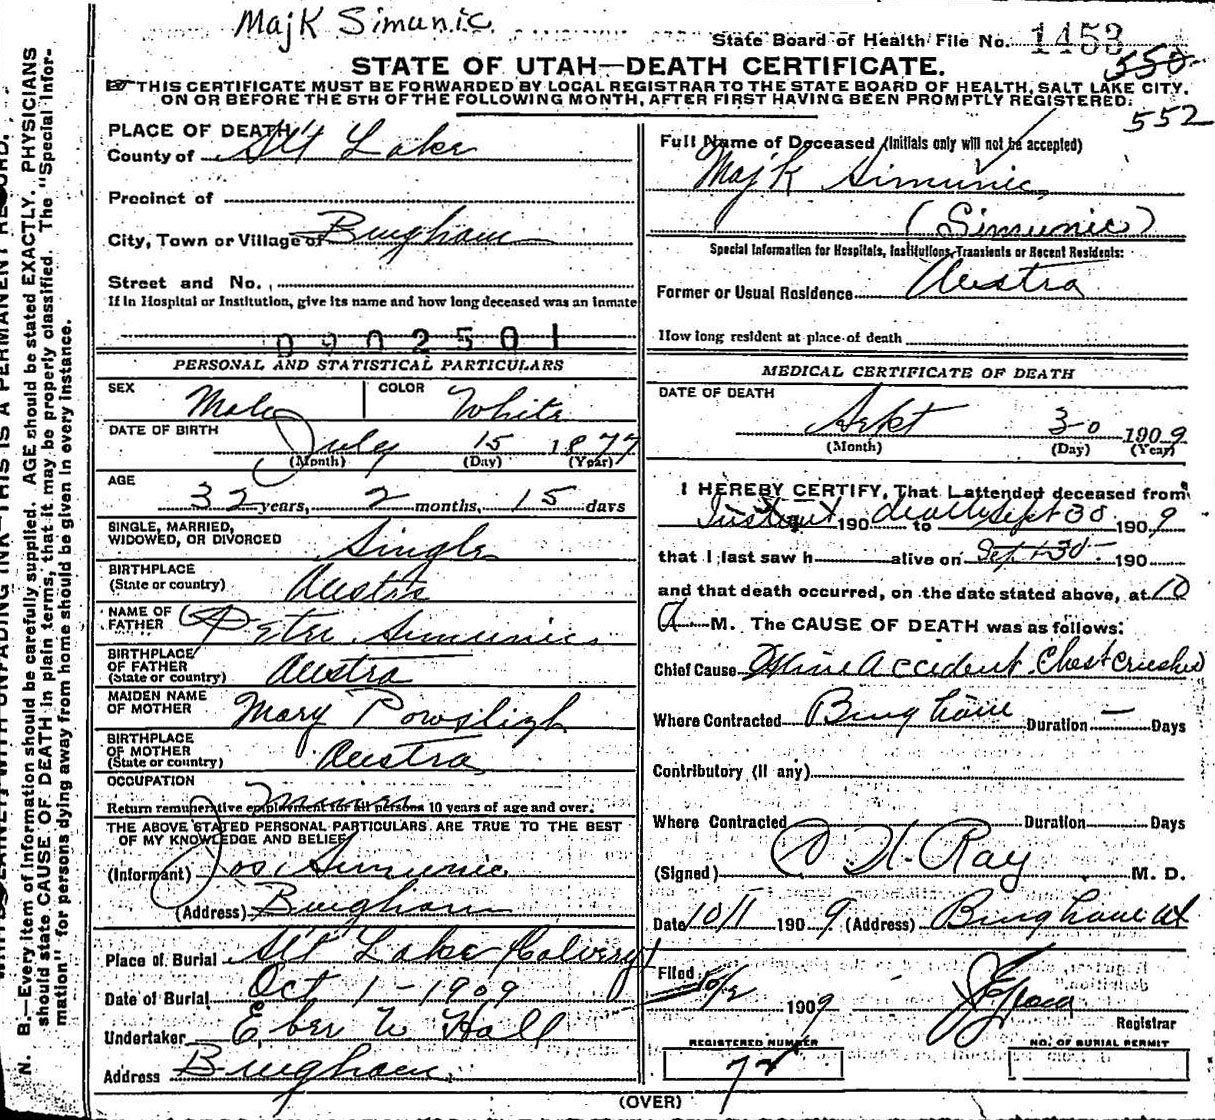 Majk Simunic
State Board of Health File No. 1453
550
STATE OF UTAH—DEATH CERTIFICATE.
THIS CERTIFICATE MUST BE FORWARDED BY LOCAL REGISTRAR TO THE STATE BOARD OF HEALTH, SALT LAKE CITY,
ON OR BEFORE THE 5TH OF THE FOLLOWING MONTH, AFTER FIRST HAVING BEEN PROMPTLY REGISTERED.
552
PLACE OF DEATH
County of Slt Lake
Precinct of
City, Town or Village of Bingham
Street and No.
If in Hospital or Institution, give its name and how long deceased was an inmate
0902501
Full Name of Deceased (Initials only will not be accepted)
Majk Simunic
(Simunic)
Special Information for Hospitals, Institutions, Transients or Recent Residents:
Former or Usual Residence Austra
How long resident at place of death
PERSONAL AND STATISTICAL PARTICULARS
SEX Male COLOR White
DATE OF BIRTH
July 15 1877
(Month) (Day) (Year)
AGE
32 years, 2 months, 15 days
SINGLE, MARRIED,
WIDOWED, OR DIVORCED Single
BIRTHPLACE
(State or country) Austria
NAME OF
FATHER Peter Simunic
BIRTHPLACE
OF FATHER
(State or country) Austra
MAIDEN NAME
OF MOTHER Mary
BIRTHPLACE
OF MOTHER
(State or country) Austra
OCCUPATION
Miner
Return remunerative employment for all persons 10 years of age and over.
THE ABOVE STATED PERSONAL PARTICULARS ARE TRUE TO THE BEST
OF MY KNOWLEDGE AND BELIEF
(Informant) Jos. Simunic
(Address) Bingham
Place of Burial Slt Lake Calvery
Date of Burial Oct 1-1909
Undertaker Eber W Hall
Address Bingham
MEDICAL CERTIFICATE OF DEATH
DATE OF DEATH
Sept 30 1909
(Month) (Day) (Year)
I HEREBY CERTIFY, That I attended deceased from
Instant 190 death to Sept 30 1909
that I last saw h alive on Sept 30 190
and that death occurred, on the date stated above, at 10
A M. The CAUSE OF DEATH was as follows:
Chief Cause Mine Accident. Chest crushed
Where Contracted Bingham Duration — Days
Contributory (If any)
Where Contracted Duration Days
(Signed) H. Ray M. D.
Date 10/1 1909 (Address) Bingham Ut
Filed 10/2 1909
Registrar
REGISTERED NUMBER
72
NO. OF BURIAL PERMIT
(OVER)
N. B.—Every item of information should be carefully supplied. AGE should be stated EXACTLY. PHYSICIANS
should state CAUSE OF DEATH in plain terms, that it may be properly classified. The "Special Infor-
mation" for persons dying away from home should be given in every instance.